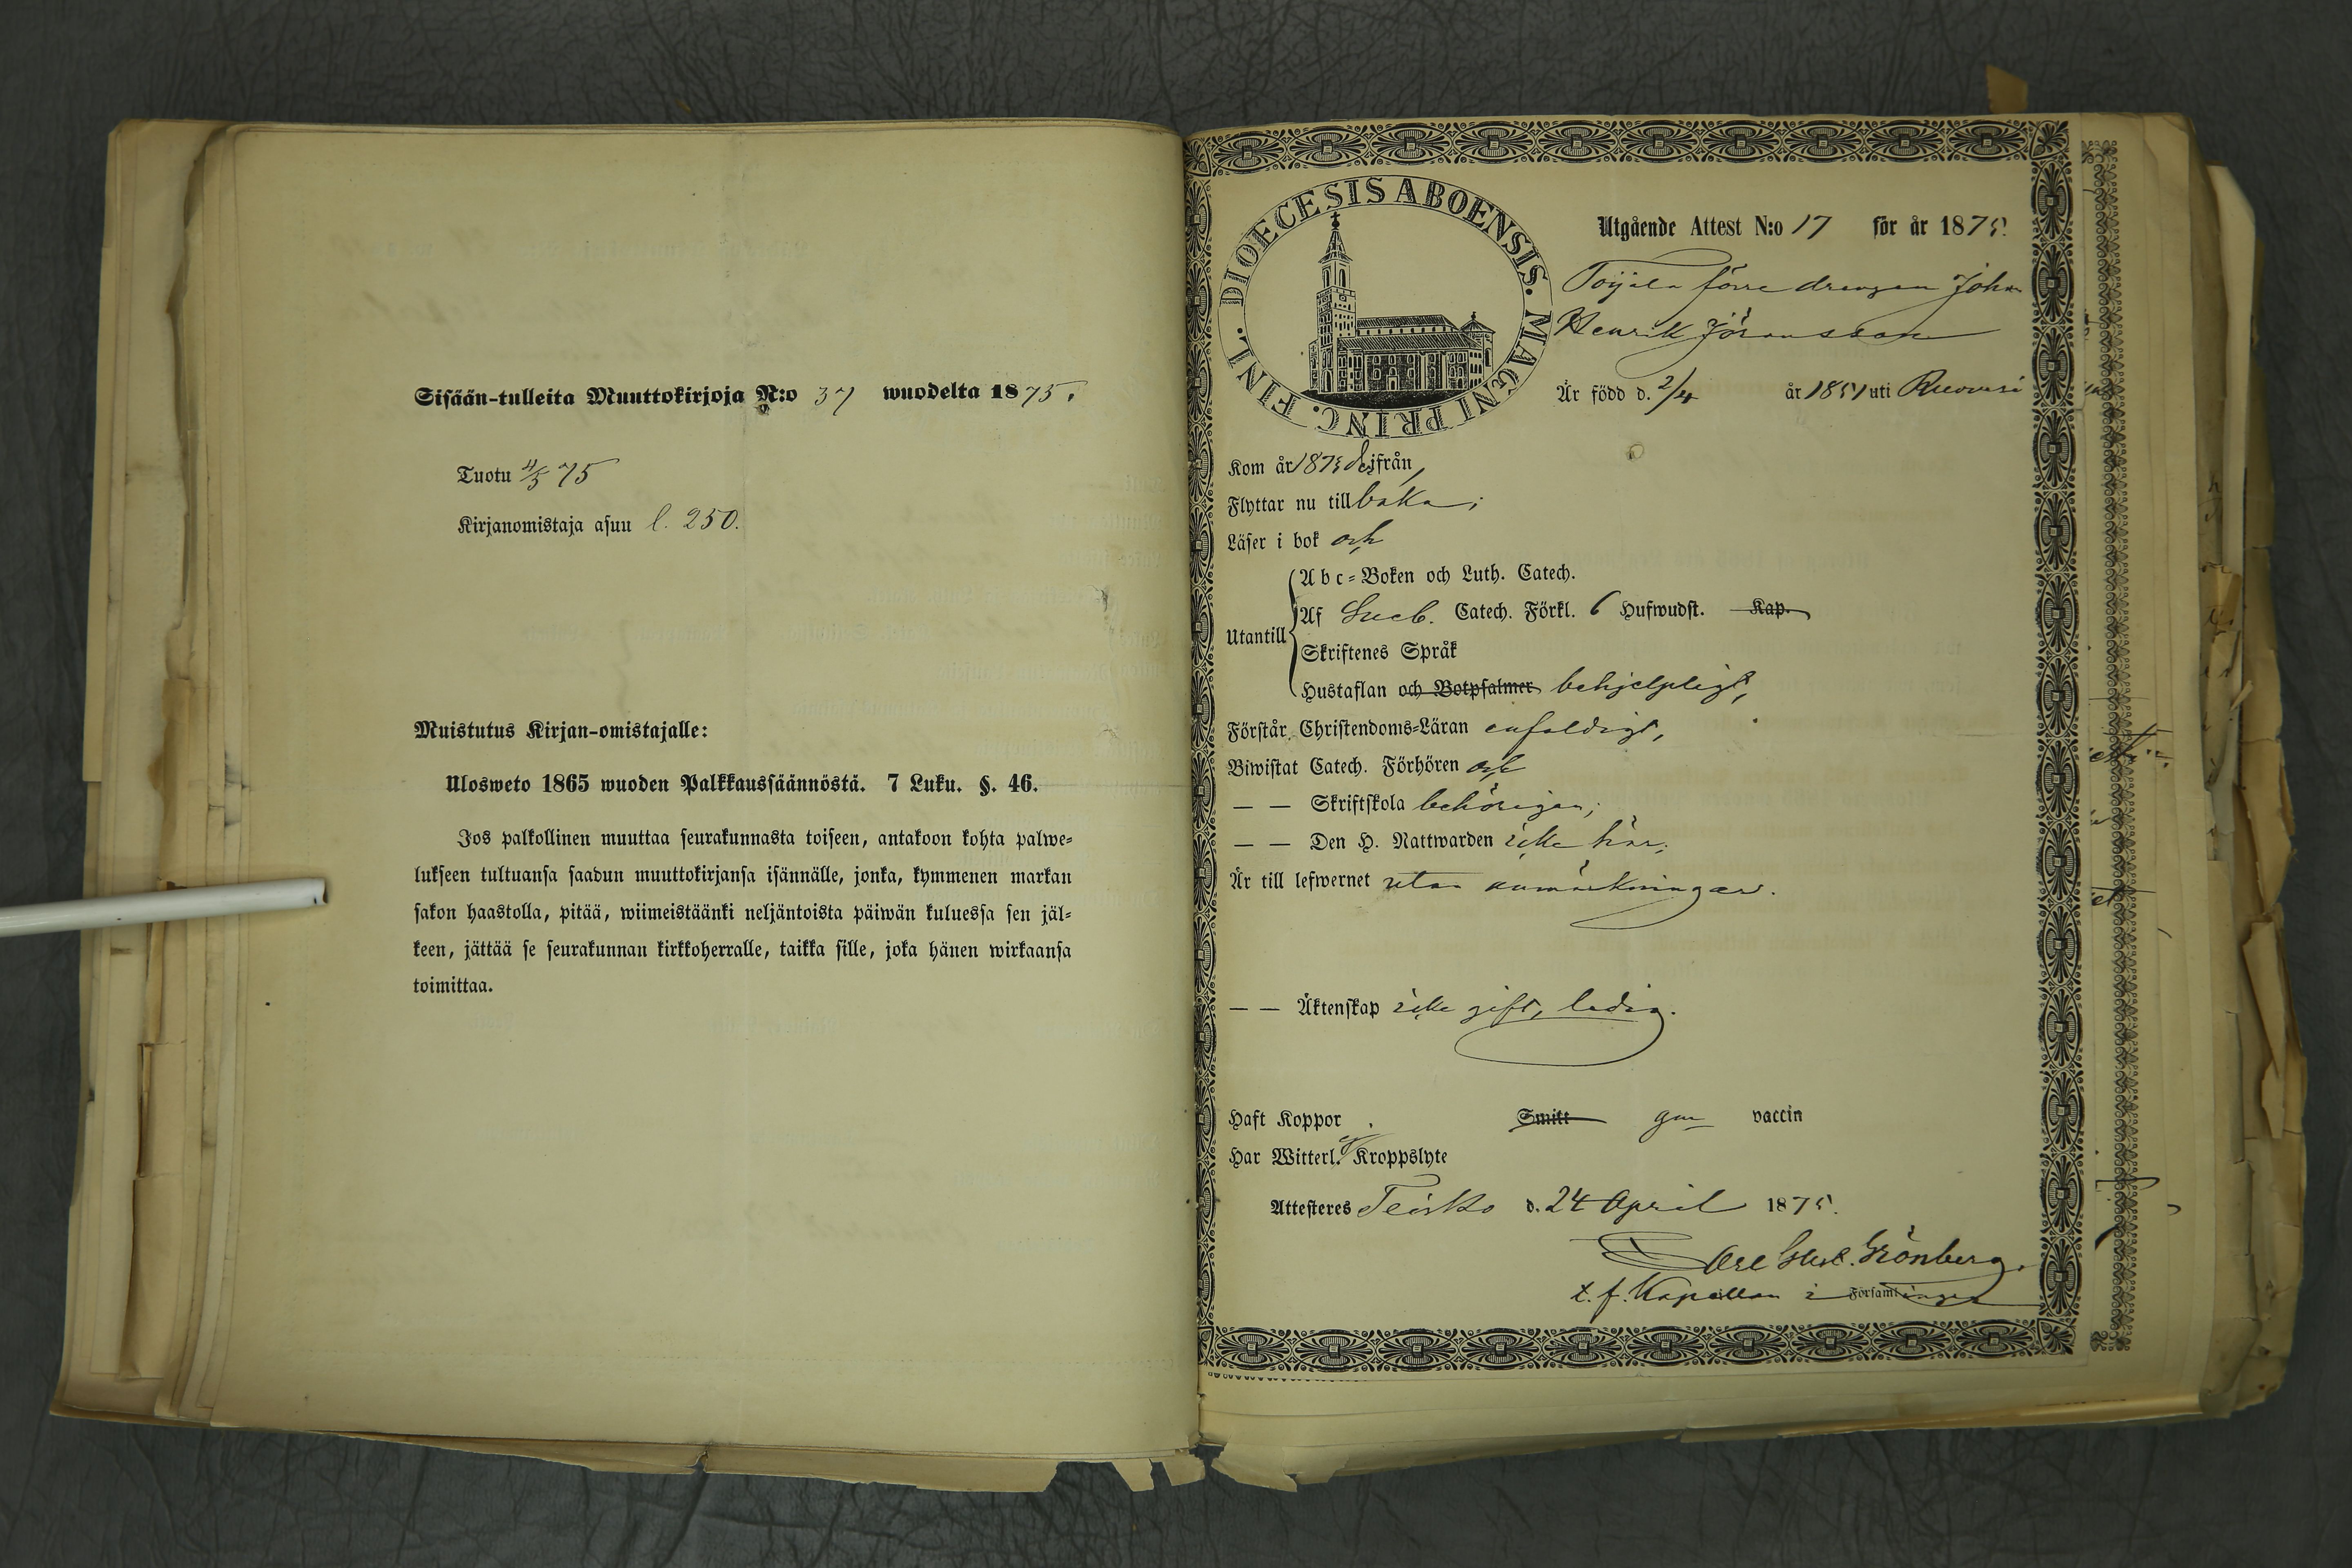 Sisään-tulleita Muuttokirjoja N:o 37 wuodelta 1875.
Tuotu 4/5 75
Kirjanomistaja asuu l. 250.
Muistutus Kirjan-omistajalle:
Ulosweto 1865 wuoden Palkkaussäännöstä. 7 Luku. §. 46.
Jos palkollinen muuttaa seurakunnasta toiseen, antakoon kohta palwe-
lukseen tultuansa saadun muuttokirjansa isännälle, jonka, kymmenen markan
sakon haastolla, pitää, wiimeistäänki neljäntoista päiwän kuluessa sen jäl-
keen, jättää se seurakunnan kirkkoherralle, taikka sille, joka hänen wirkaansa
toimittaa.
DIOECESIS ABOENSIS. MAGNI PRINC. FINL.
Utgående Attest N:o 17 för år 1875.
förre drengen Johan
Henrik Jöransson
Är född d. 2/4 år 1851 uti Ruovesi
Kom år 1873 ifrån,
Flyttar nu tillbaka;
Läser i bok och
Utantill
Abc-Boken och Luth. Catech.
Af Sveb. Catech. Förkl. 6 Hufwudst. Kap.
Skriftenes Språk
Hustaflan och Botpsalmer behjelpligt,
Förstår Christendoms-Läran enfaldigt,
Biwistat Catech. Förhören och
— — Skriftskola behörigen;
— — Den H. Nattwarden icke här;
Är till lefwernet utan anmärkningar.
— — Äktenskap icke gift, ledig.
Haft Koppor Smitt gm vaccin
Har Witterl. ej Kroppslyte
Attesteres Teisko d. 24 April 1875.
Carl Gust. Grönberg.
t. f. Kapellan i Församlingen